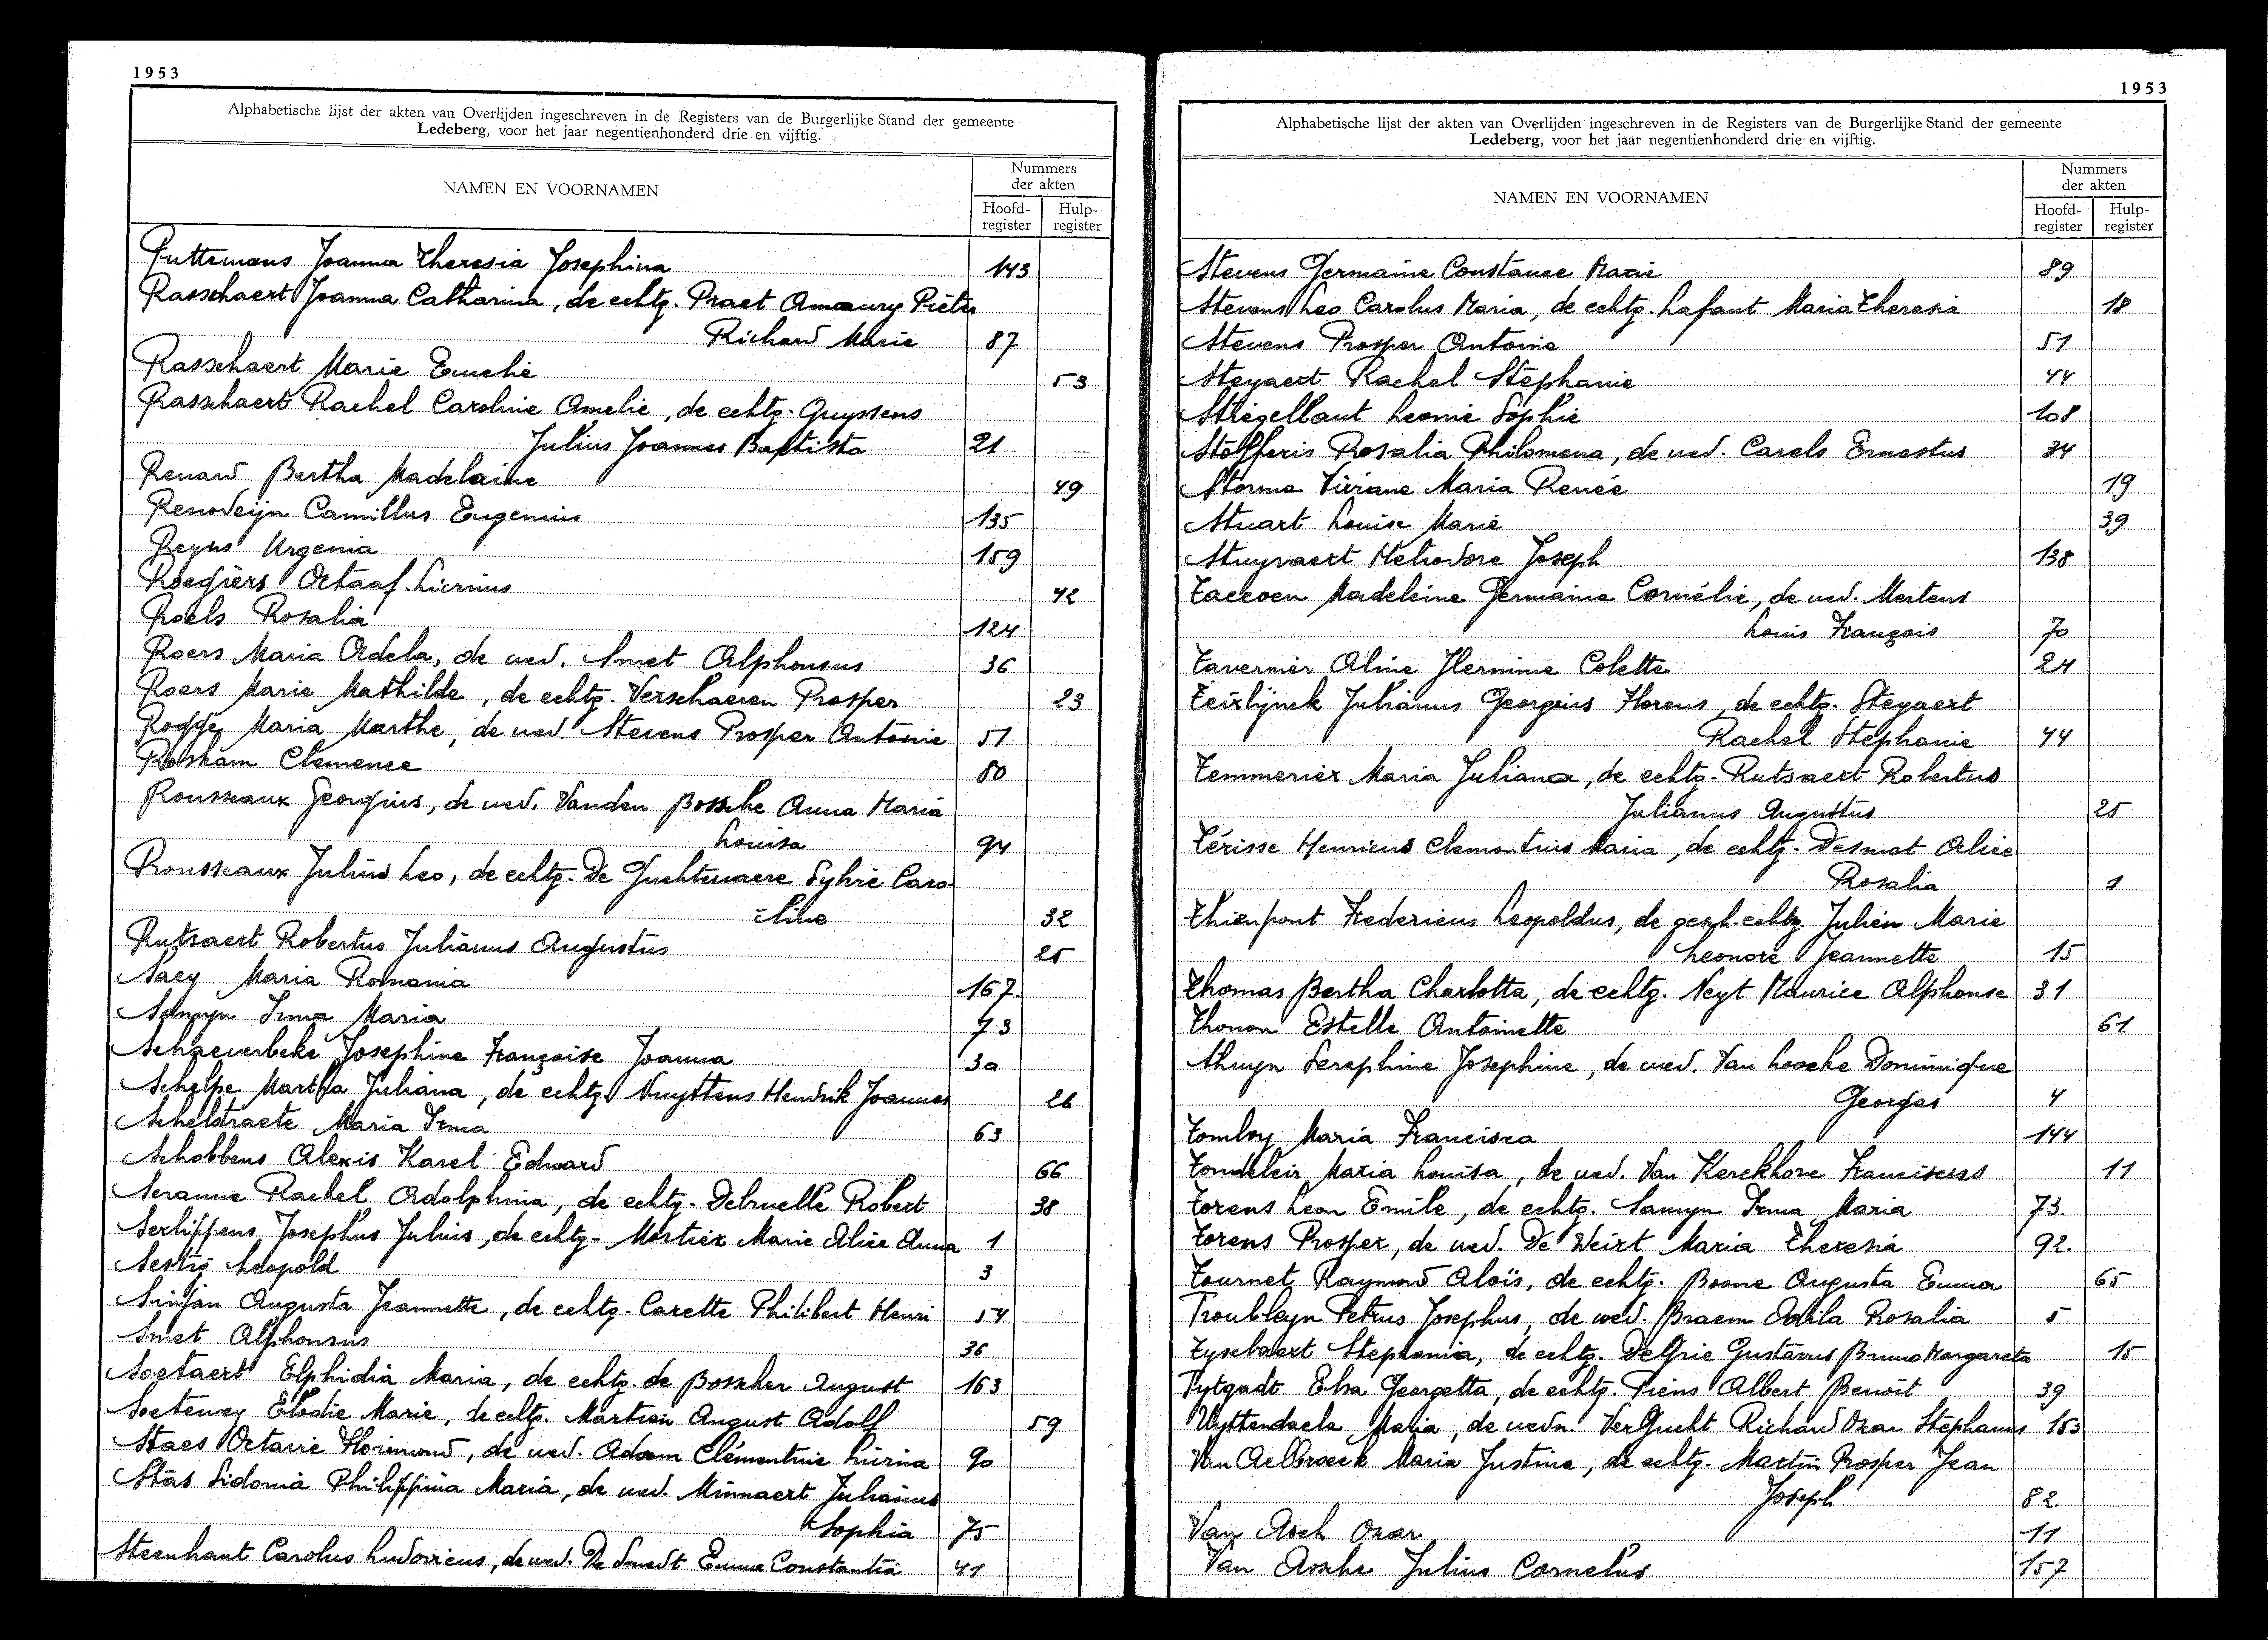 1953
Alphabetische lijst der akten van Overlijden ingeschreven in de Registers van de Burgerlijke Stand der gemeente
Ledeberg, voor het jaar negentienhonderd drie en vijftig.
NAMEN EN VOORNAMEN
Nummers
der akten
Hoofd-
register
Hulp-
register
Puttemans Joanna Theresia Josephina 143
Rasschaert Joanna Catharina, de echtg. Praet Amaury Pieter
Richard Marie 87
Rasschaert Marie Emelie 53
Rasschaert Rachel Caroline Amelie, de echtg. Guyssens
Julius Joannes Baptista 21
Renard Bertha Madelaine 49
Renodeijn Camillus Eugenius 135
Reyns Urgenia 159
Roegiers Octaaf Livinus 42
Roels Rosalia 124
Roers Maria Adela, de wed. Smet Alphonsus 36
Roers Marie Mathilde, de echtg. Verschaeren Prosper 23
Rogge Maria Marthe, de wed. Stevens Prosper Antoine 51
Roskam Clemence 80
Rousseaux Georgius, de wed. Vanden Bossche Anna Maria
Louisa 94
Rousseaux Julius Leo, de echtg. De Guchtenaere Sylvie Caro-
line 32
Rutsaert Robertus Julianus Augustus 25
Saey Maria Romania 167
Samyn Irma Maria 73
Schaeverbeke Josephine Françoise Joanna 30
Schelpe Martha Juliana, de echtg. Nuyttens Hendrik Joannes 26
Schelstraete Maria Irma 63
Schobbens Alexis Karel Edward 66
Seranne Rachel Adolphina, de echtg. Debruelle Robert 38
Serlippens Josephus Julius, de echtg. Mortier Marie Alice Anna 1
Sestig Leopold 3
Sinjan Augusta Jeannette, de echtg. Carette Philibert Henri 54
Smet Alphonsus 36
Soetaert Elphidia Maria, de echtg. de Bosscher August 163
Soetewey Elodie Marie, de echtg. Martien August Adolf 59
Staes Octavie Florimond, de wed. Adam Clémentine Livina 90
Stas Sidonia Philippina Maria, de wed. Minnaert Julianus
Sophia 75
Steenhaut Carolus Ludovicus, de wed. De Smedt Emma Constantia 41
1953
Alphabetische lijst der akten van Overlijden ingeschreven in de Registers van de Burgerlijke Stand der gemeente
Ledeberg, voor het jaar negentienhonderd drie en vijftig.
NAMEN EN VOORNAMEN
Nummers
der akten
Hoofd-
register
Hulp-
register
Stevens Germaine Constance Marie 89
Stevens Leo Carolus Maria, de echtg. Lafaut Maria Theresia 18
Stevens Prosper Antoine 51
Steyaert Rachel Stéphanie 44
Striegellaut Leonie Sophie 108
Stofferis Rosalia Philomena, de wed. Carels Ernestus 34
Storme Viviane Maria Renée 19
Stuart Louise Marie 39
Stuyvaert Heliodore Joseph 138
Taccoen Madeleine Germaine Cornélie, de wed. Mertens
Louis François 70
Tavernier Aline Hermine Colette 24
Teirlijnck Julianus Georgius Florens, de echtg. Steyaert
Rachel Stephanie 44
Temmerier Maria Juliana, de echtg. Rutsaert Robertus
Julianus Augustus 25
Térisse Henricus Clementius Maria, de echtg. Desmet Alice
Rosalia 1
Thienpont Fredericus Leopoldus, de gesch. echtg. Julien Marie
Leonore Jeannette 15
Thomas Bertha Charlotta, de echtg. Neyt Maurice Alphonse 31
Thonon Estelle Antoinette 61
Thuyn Seraphine Josephine, de wed. Van Loocke Dominique
Georges 4
Tomboy Maria Francisca 144
Tondeleir Maria Louisa, de wed. Van Kerckhove Franciscus 11
Torens Leon Emile, de echtg. Samyn Irma Maria 73.
Torens Prosper, de wed. De Weirt Maria Theresia 92.
Tournet Raymond Aloïs, de echtg. Boone Augusta Emma 65
Troubleyn Petrus Josephus, de wed. Braem Odila Rosalia 5
Tysebaert Stephania, de echtg. De Grie Gustavus Bruno Margareta 15
Tytgadt Elsa Georgetta, de echtg. Piens Albert Benoit 39
Uyttendaele Maria, de wedn. VerGucht Richard Oscar Stephanus 153
Van Aelbroeck Maria Justina, de echtg. Martin Prosper Jean
Joseph 82
Van Asch Oscar 11
Van Assche Julius Cornelus 157